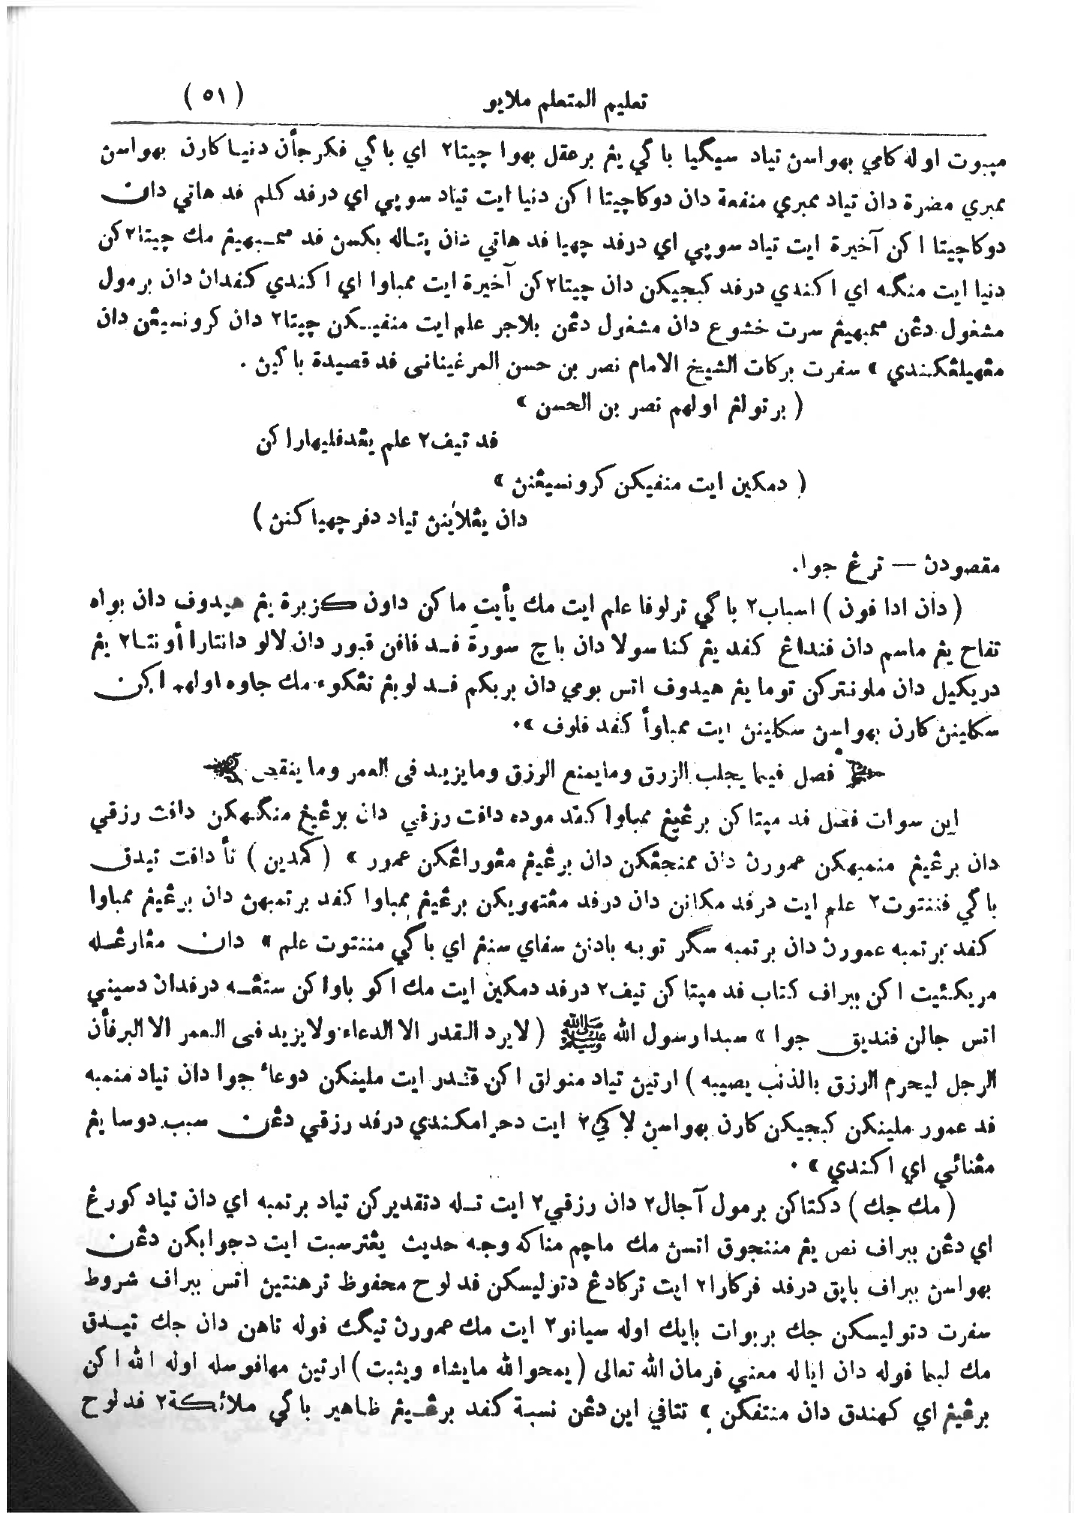 تعليم المتعلم ملايو
( ٥١ )
مپبوت اوله كامي بهواسن تياد سيݢيا باݢي يڠ برعقل بهوا چيتا٢ اي باݢي فكرجأن دنيا كارن بهواسن
ممبري مضرة دان تياد ممبري منفعة دان دوكاچيتا اكن دنيا ايت تياد سوڽي اي درفد كلم فد هاتي دان
دوكاچيتا اكن آخيرة ايت تياد سوڽي اي درفد چهيا فد هاتي دان پتاله بكسن فد سمبهيڠ مك چيتا٢كن
دنيا ايت منݢه اي اكندي درفد كبجيكن دان چيتا٢كن آخيرة ايت ممباوا اي اكندي كفدان دان برمول
مشغول دڠن سمبهيڠ سرت خشوع دان مشغول دڠن بلاجر علم ايت منفيكن چيتا٢ دان كرونسيڠن دان
مڠهيلڠكندي » سفرت بركات الشيخ الامام نصر بن حسن المرغيناني فد قصيدة باكين .
( برتولڠ اولهم نصر بن الحسن »
فد تيف٢ علم يڠدفليهاراكن
( دمكين ايت منفيكن كرونسيڠنن »
دان يڠلاينن تياد دفرچهياكنن )
مقصودن — ترڠ جوا.
( دان ادافون ) اسباب٢ باݢي ترلوفا علم ايت مك يأيت ماكن داون كزبرة يڠ هيدوف دان بواه
تفاح يڠ ماسم دان فنداڠ كفد يڠ كنا سولا دان باچ سورة فد فافن قبور دان لالو دانتارا أونتا٢ يڠ
دريكيل دان ملونتركن توما يڠ هيدوف اتس بومي دان بربكم فد لوبڠ تڠكوء مك جاوه اولهم اكن
سكلينن كارن بهواسن سكلينن ايت ممباوأ كفد فلوف ».
فصل فيما يجلب الرزق وما يمنع الرزق وما يزيد في العمر وما ينقص
اين سوات فصل فد مپتاكن برڠيڠ ممباوا كفد موده دافت رزقي دان برڠيڠ منݢهكن دافت رزقي
دان برڠيڠ منمبهكن عمورن دان ممنجڠكن دان برڠيڠ مڠوراڠكن عمور » ( كمدين ) تأ دافت تيدق
باݢي فننتوت٢ علم ايت درفد مكانن دان درفد مڠتهويكن برڠيڠ ممباوا كفد برتمبهن دان برڠيڠ ممباوا
كفد برتمبه عمورن دان برتمبه سݢر توبه بادنن سفاي سنڠ اي باݢي مننتوت علم » دان مڠارڠله
مريكئيت اكن ببراف كتاب فد مپتاكن تيف٢ درفد دمكين ايت مك اكو باوا كن ستڠه درفدان دسيني
اتس جالن فنديق جوا » سبدا رسول الله ﷺ ( لا يرد القدر الا الدعاء ولا يزيد في العمر الا البر فأن
الرجل ليحرم الرزق بالذنب يصيبه ) ارتين تياد منولق اكن قدر ايت ملينكن دوعاء جوا دان تياد منمبه
فد عمور ملينكن كبجيكن كارن بهواسن لاكي٢ ايت دحرامكندي درفد رزقي دڠن سبب دوسا يڠ
مڠنائي اي اكندي » .
( مك جك ) دكتاكن برمول آجال٢ دان رزقي٢ ايت تله دتقديركن تياد برتمبه اي دان تياد كورڠ
اي دڠن ببراف نص يڠ مننجوق اتسن مك ماچم مناكه وجه حديث يڠترسبت ايت دجوابكن دڠن
بهواسن ببراف بايق درفد فركارا٢ ايت تركادڠ دتوليسكن فد لوح محفوظ ترهنتين اتس ببراف شروط
سفرت دتوليسكن جك بربوات بايك اوله سيانو٢ ايت مك عمورن تيݢ فوله تاهن دان جك تيدق
مك ليما فوله دان اياله معني فرمان الله تعالى ( يمحوا الله ما يشاء ويثبت ) ارتين مهافوسله اوله الله اكن
برڠيڠ اي كهندق دان منتفكن » تتافي اين دڠن نسبة كفد برڠيڠ ظاهير باݢي ملائكة٢ فد لوح